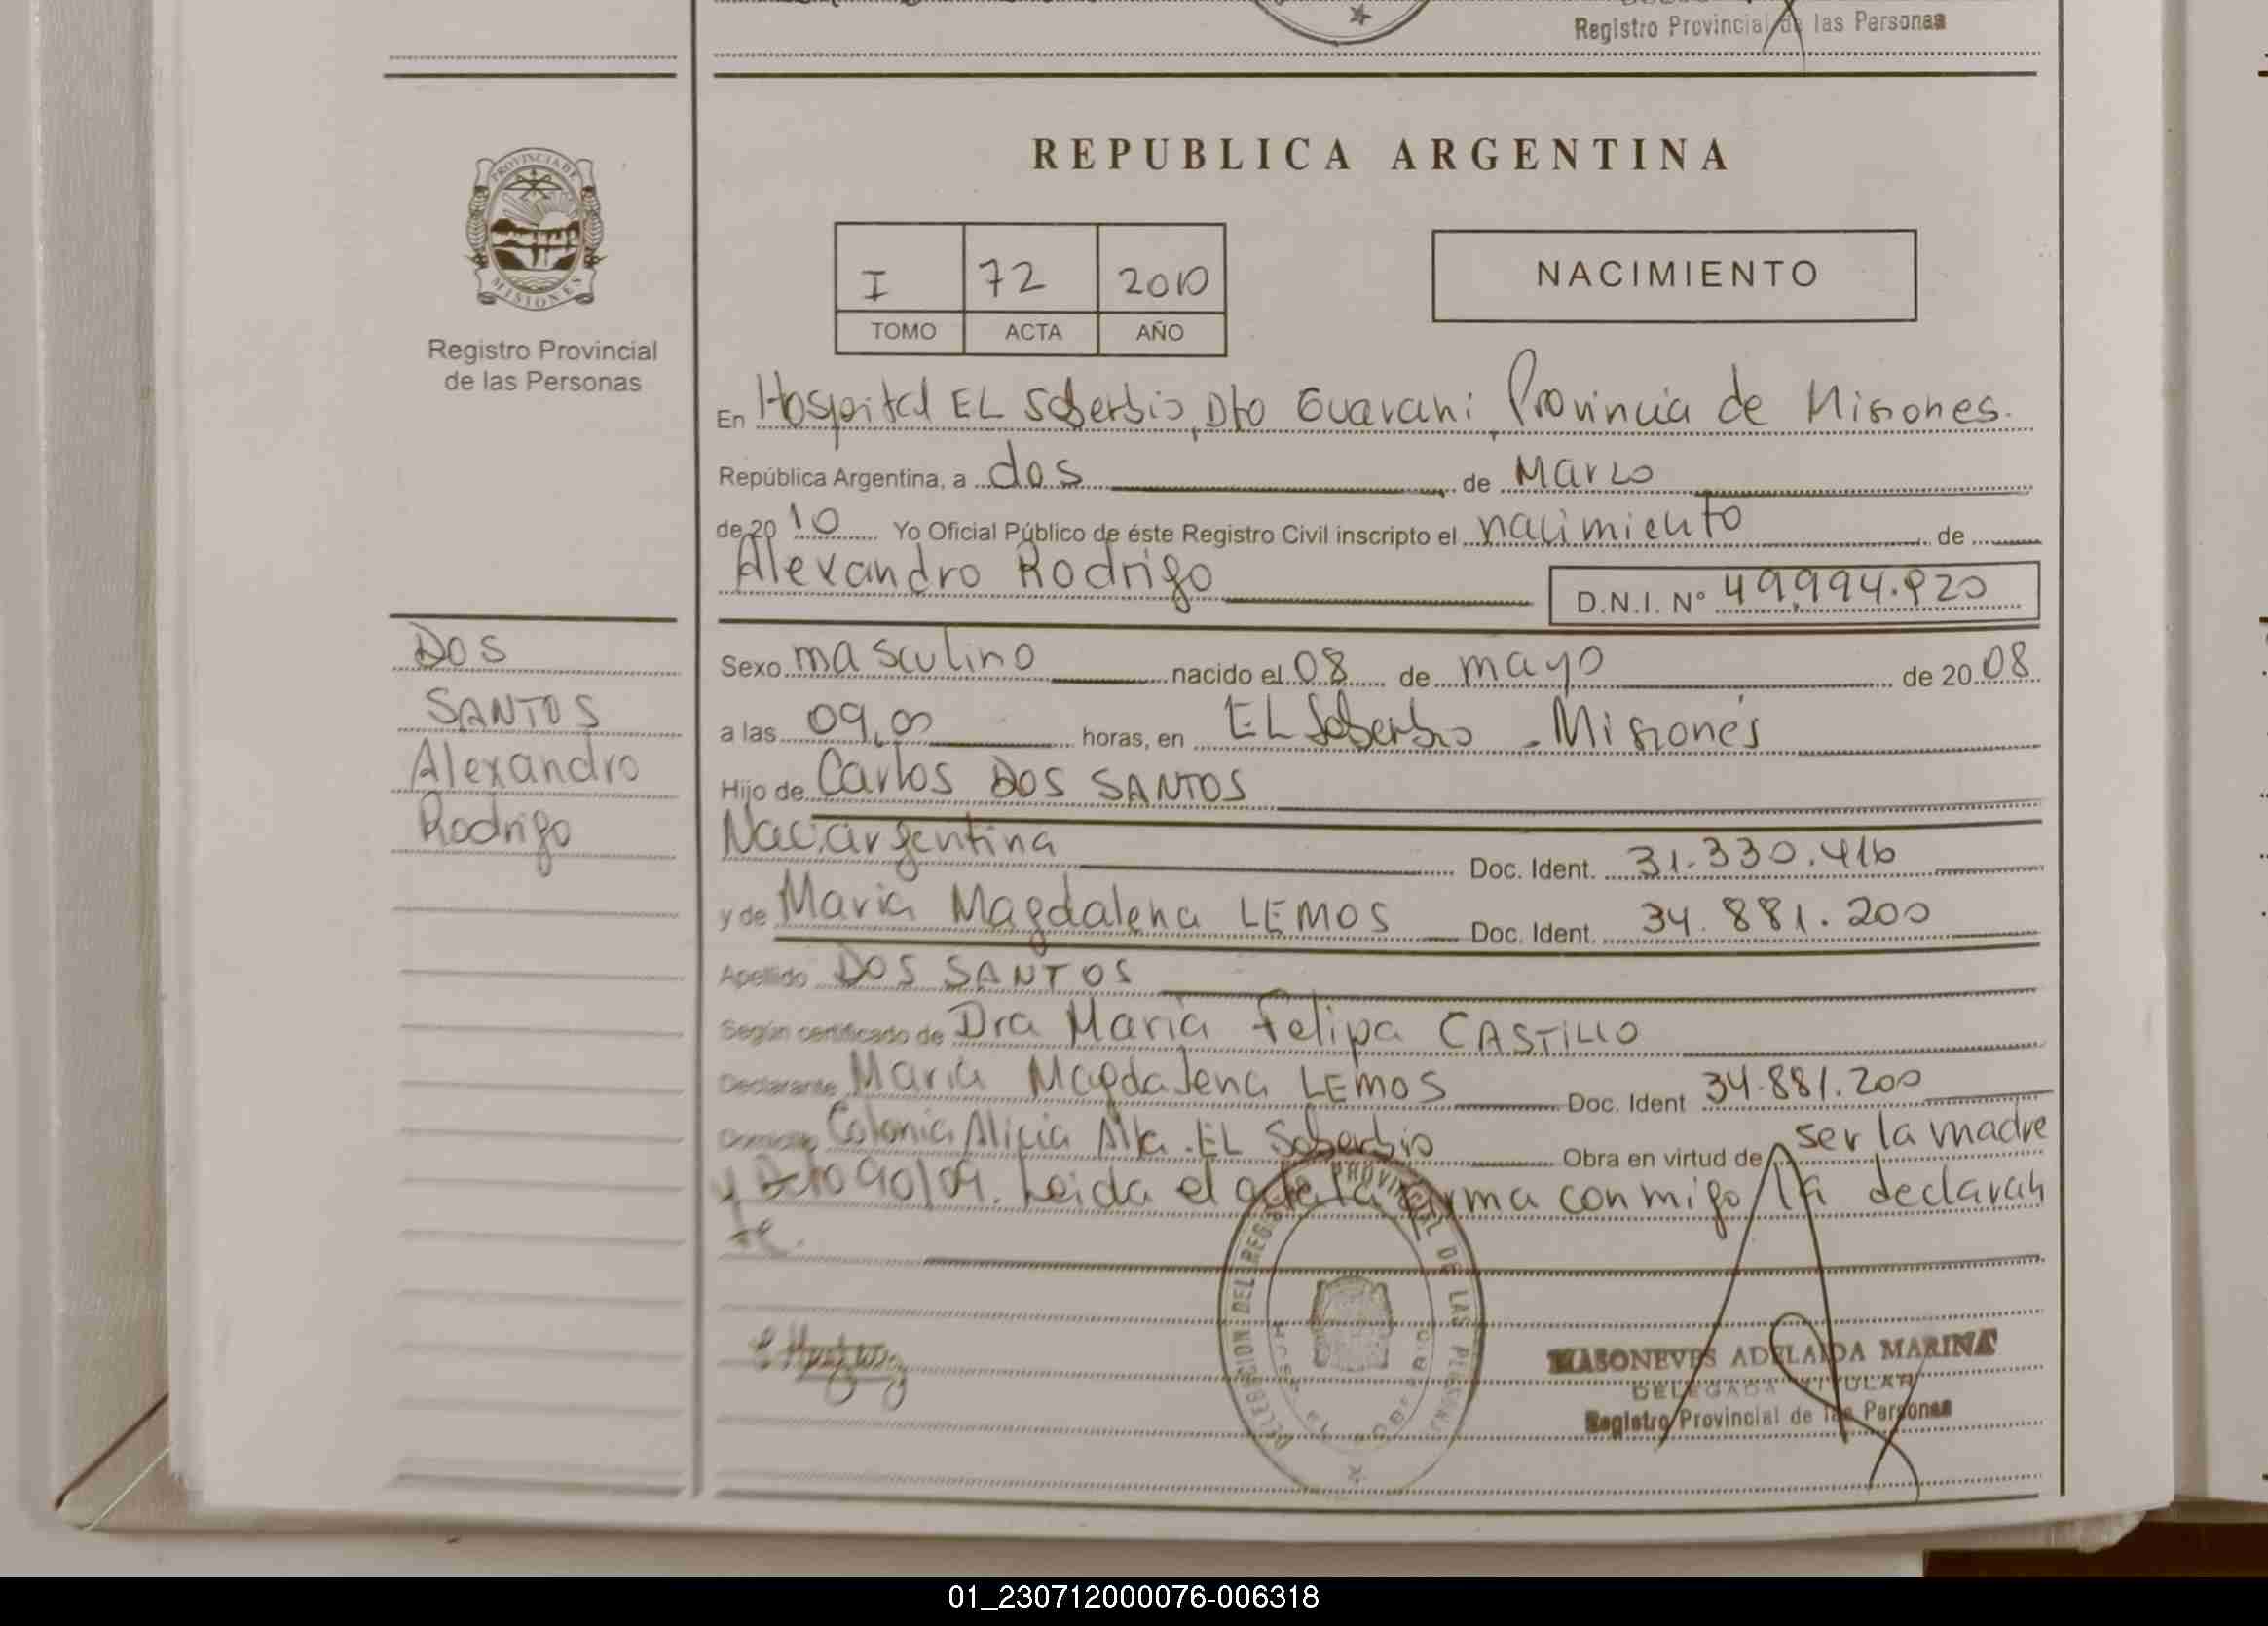 Registro Provincial de las Personas
REPUBLICA ARGENTINA
PROVINCIA DE
MISIONES
Registro Provincial
de las Personas
I 72 2010
TOMO ACTA AÑO
NACIMIENTO
En Hospital EL Soberbio, Dto Guarani, Provincia de Misiones.
República Argentina, a dos de Marzo
de 20 10 Yo Oficial Público de éste Registro Civil inscripto el nacimiento de
Alexandro Rodrigo D.N.I. N° 49.994.920
DOS
SANTOS
Alexandro
Rodrigo
Sexo masculino nacido el 08 de mayo de 20 08
a las 09,00 horas, en EL Soberbio - Misiones
Hijo de Carlos DOS SANTOS
Nac. argentina Doc. Ident. 31.330.416
y de Maria Magdalena LEMOS Doc. Ident. 34.881.200
Apellido DOS SANTOS
Según certificado de Dra Maria Felipa CASTILLO
Declarante Maria Magdalena LEMOS Doc. Ident 34.881.200
Domicilio Colonia Alicia Alta. EL Soberbio Obra en virtud de ser la madre
y Dcto 90/09. Leida el acta la firma conmigo la declaran
te.
DELEGACION DEL REGISTRO PROVINCIAL DE LAS PERSONAS
MASONEVES ADELAIDA MARINA
DELEGADA TITULAR
Registro Provincial de las Personas
01_230712000076-006318